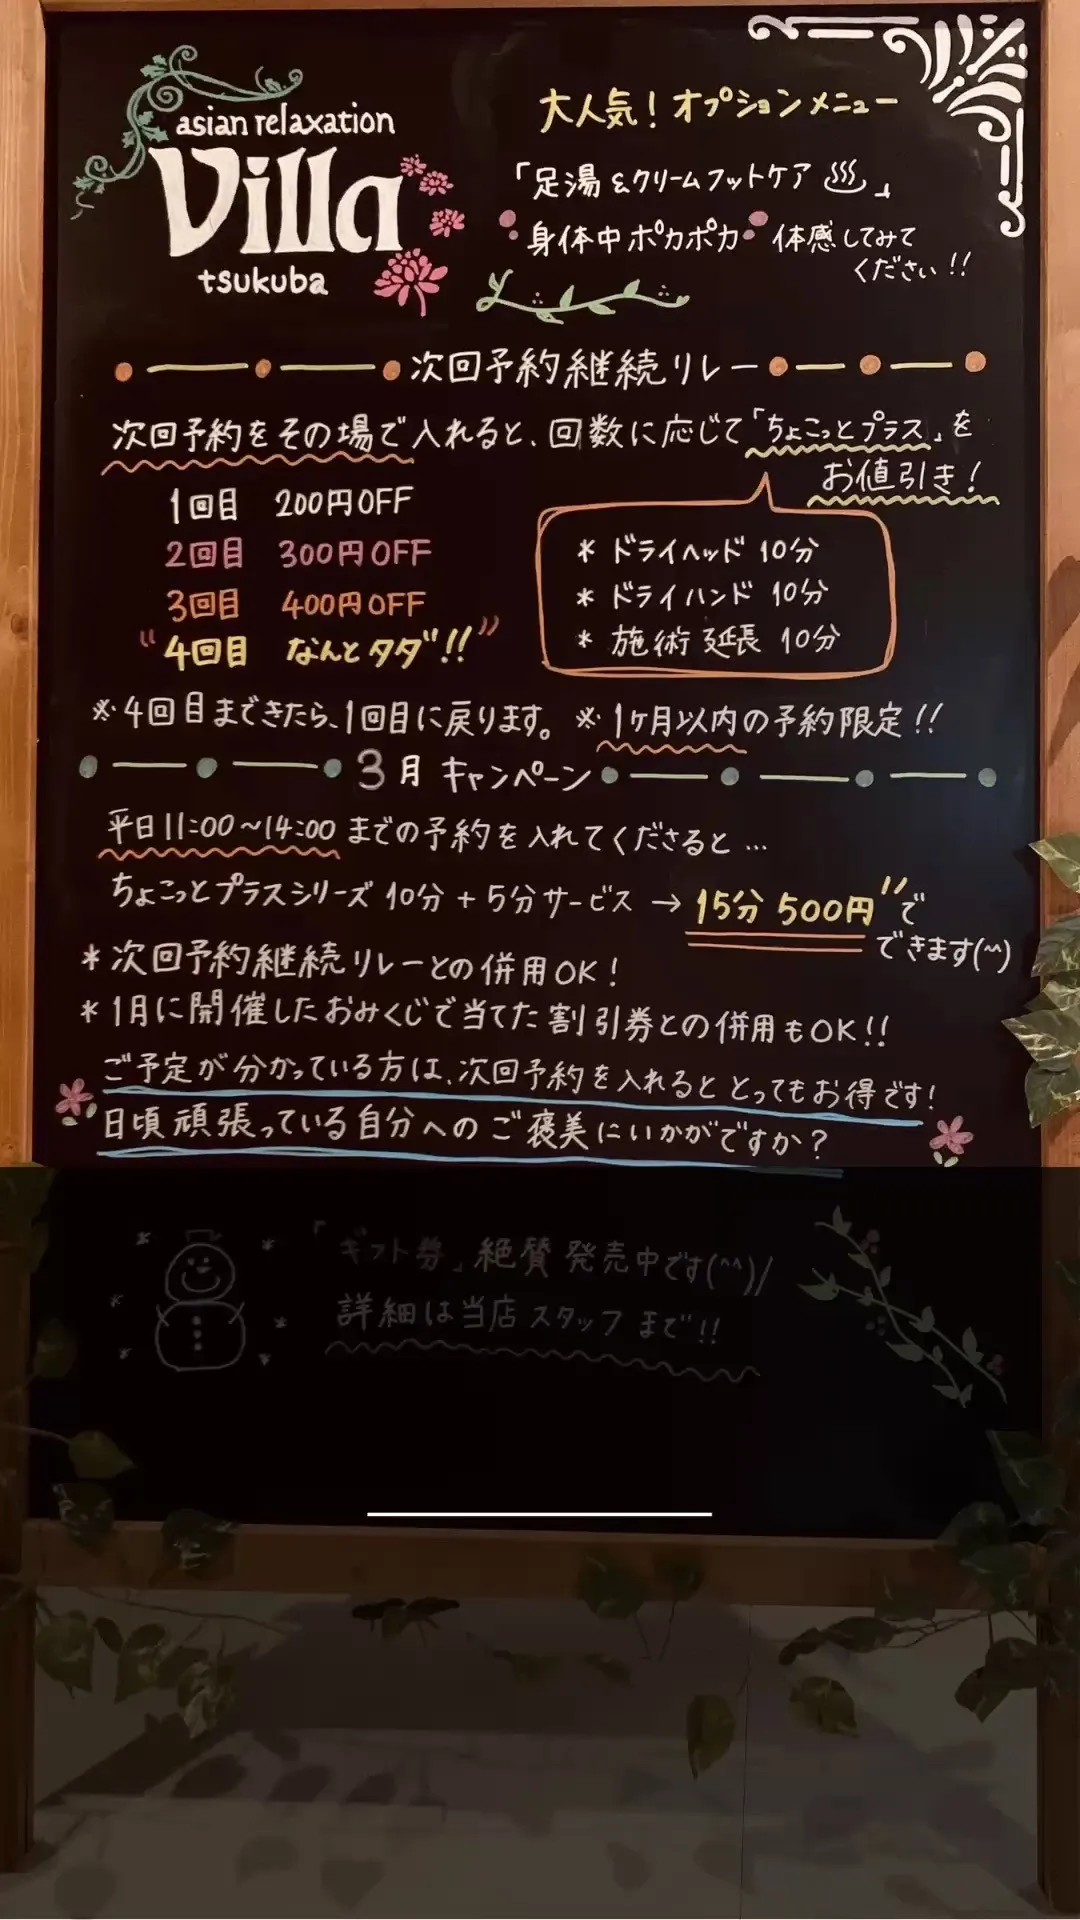 asian relaxation
Villa
tsukuba
大人気！オプションメニュー
「足湯&クリームフットケア♨」
身体中ポカポカ 体感してみて
ください!!
次回予約継続リレー
次回予約をその場で入れると、回数に応じて「ちょこっとプラス」を
お値引き！
1回目 200円OFF
2回目 300円OFF
3回目 400円OFF
"4回目 なんとタダ!!"
* ドライヘッド 10分
* ドライハンド 10分
* 施術延長 10分
※4回目まできたら、1回目に戻ります。 ※1ヶ月以内の予約限定!!
3月 キャンペーン
平日11:00〜14:00までの予約を入れてくださると…
ちょこっとプラスシリーズ 10分+5分サービス → 15分 500円"で
できます(^^)
*次回予約継続リレーとの併用OK!
*1月に開催したおみくじで当てた割引券との併用もOK!!
ご予定が分かっている方は、次回予約を入れるととってもお得です!
日頃頑張っている自分へのご褒美にいかがですか?
「ギフト券」絶賛発売中です(^^)/
詳細は当店スタッフまで!!